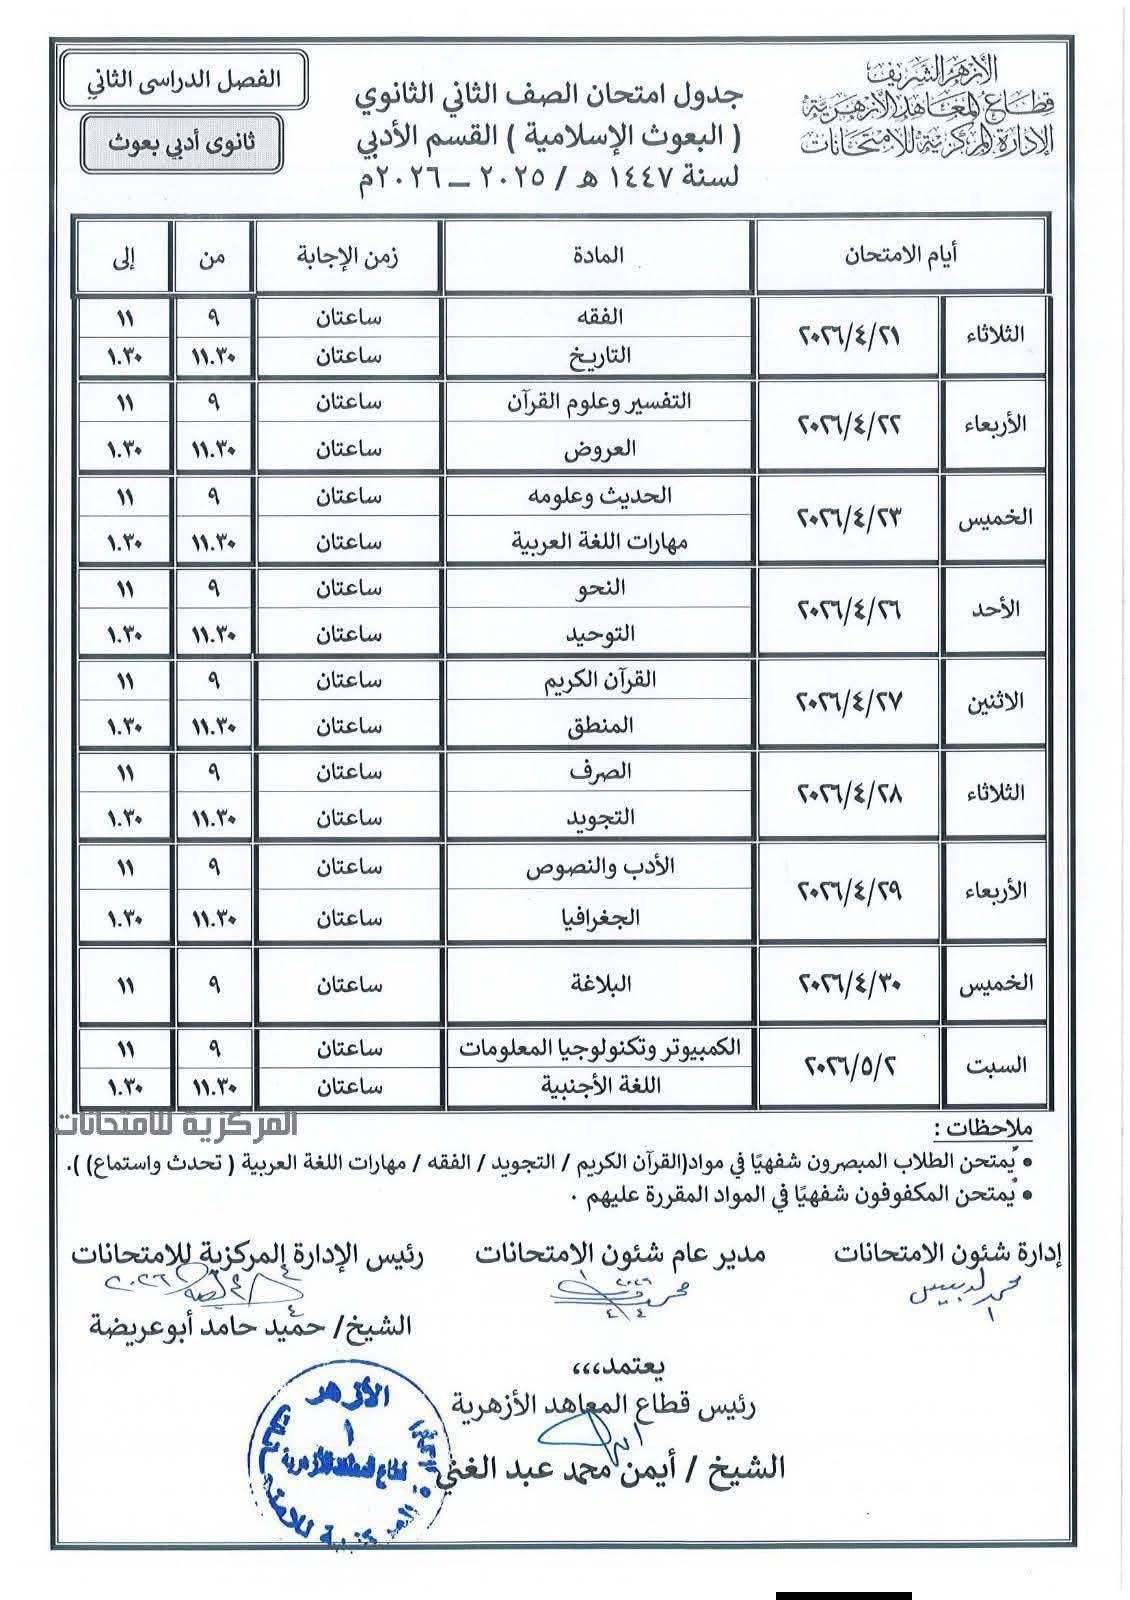 الأزهر الشريف
قطاع المعاهد الأزهرية
الإدارة المركزية للامتحانات
جدول امتحان الصف الثاني الثانوي
( البعوث الإسلامية ) القسم الأدبي
لسنة ١٤٤٧ هـ / ٢٠٢٥ – ٢٠٢٦م
الفصل الدراسى الثاني
ثانوى أدبي بعوث
أيام الامتحان المادة زمن الإجابة من إلى
الثلاثاء ٢٠٢٦/٤/٢١ الفقه ساعتان ٩ ١١
التاريخ ساعتان ١١.٣٠ ١.٣٠
الأربعاء ٢٠٢٦/٤/٢٢ التفسير وعلوم القرآن ساعتان ٩ ١١
العروض ساعتان ١١.٣٠ ١.٣٠
الخميس ٢٠٢٦/٤/٢٣ الحديث وعلومه ساعتان ٩ ١١
مهارات اللغة العربية ساعتان ١١.٣٠ ١.٣٠
الأحد ٢٠٢٦/٤/٢٦ النحو ساعتان ٩ ١١
التوحيد ساعتان ١١.٣٠ ١.٣٠
الاثنين ٢٠٢٦/٤/٢٧ القرآن الكريم ساعتان ٩ ١١
المنطق ساعتان ١١.٣٠ ١.٣٠
الثلاثاء ٢٠٢٦/٤/٢٨ الصرف ساعتان ٩ ١١
التجويد ساعتان ١١.٣٠ ١.٣٠
الأربعاء ٢٠٢٦/٤/٢٩ الأدب والنصوص ساعتان ٩ ١١
الجغرافيا ساعتان ١١.٣٠ ١.٣٠
الخميس ٢٠٢٦/٤/٣٠ البلاغة ساعتان ٩ ١١
السبت ٢٠٢٦/٥/٢ الكمبيوتر وتكنولوجيا المعلومات ساعتان ٩ ١١
اللغة الأجنبية ساعتان ١١.٣٠ ١.٣٠
المركزية للامتحانات
ملاحظات :
• يُمتحن الطلاب المبصرون شفهيًا في مواد(القرآن الكريم / التجويد / الفقه / مهارات اللغة العربية ( تحدث واستماع) ).
• يُمتحن المكفوفون شفهيًا في المواد المقررة عليهم .
إدارة شئون الامتحانات مدير عام شئون الامتحانات رئيس الإدارة المركزية للامتحانات
الشيخ/ حميد حامد أبوعريضة
يعتمد،،،
رئيس قطاع المعاهد الأزهرية
الشيخ / أيمن محمد عبد الغني
الأزهر
١
قطاع المعاهد الأزهرية